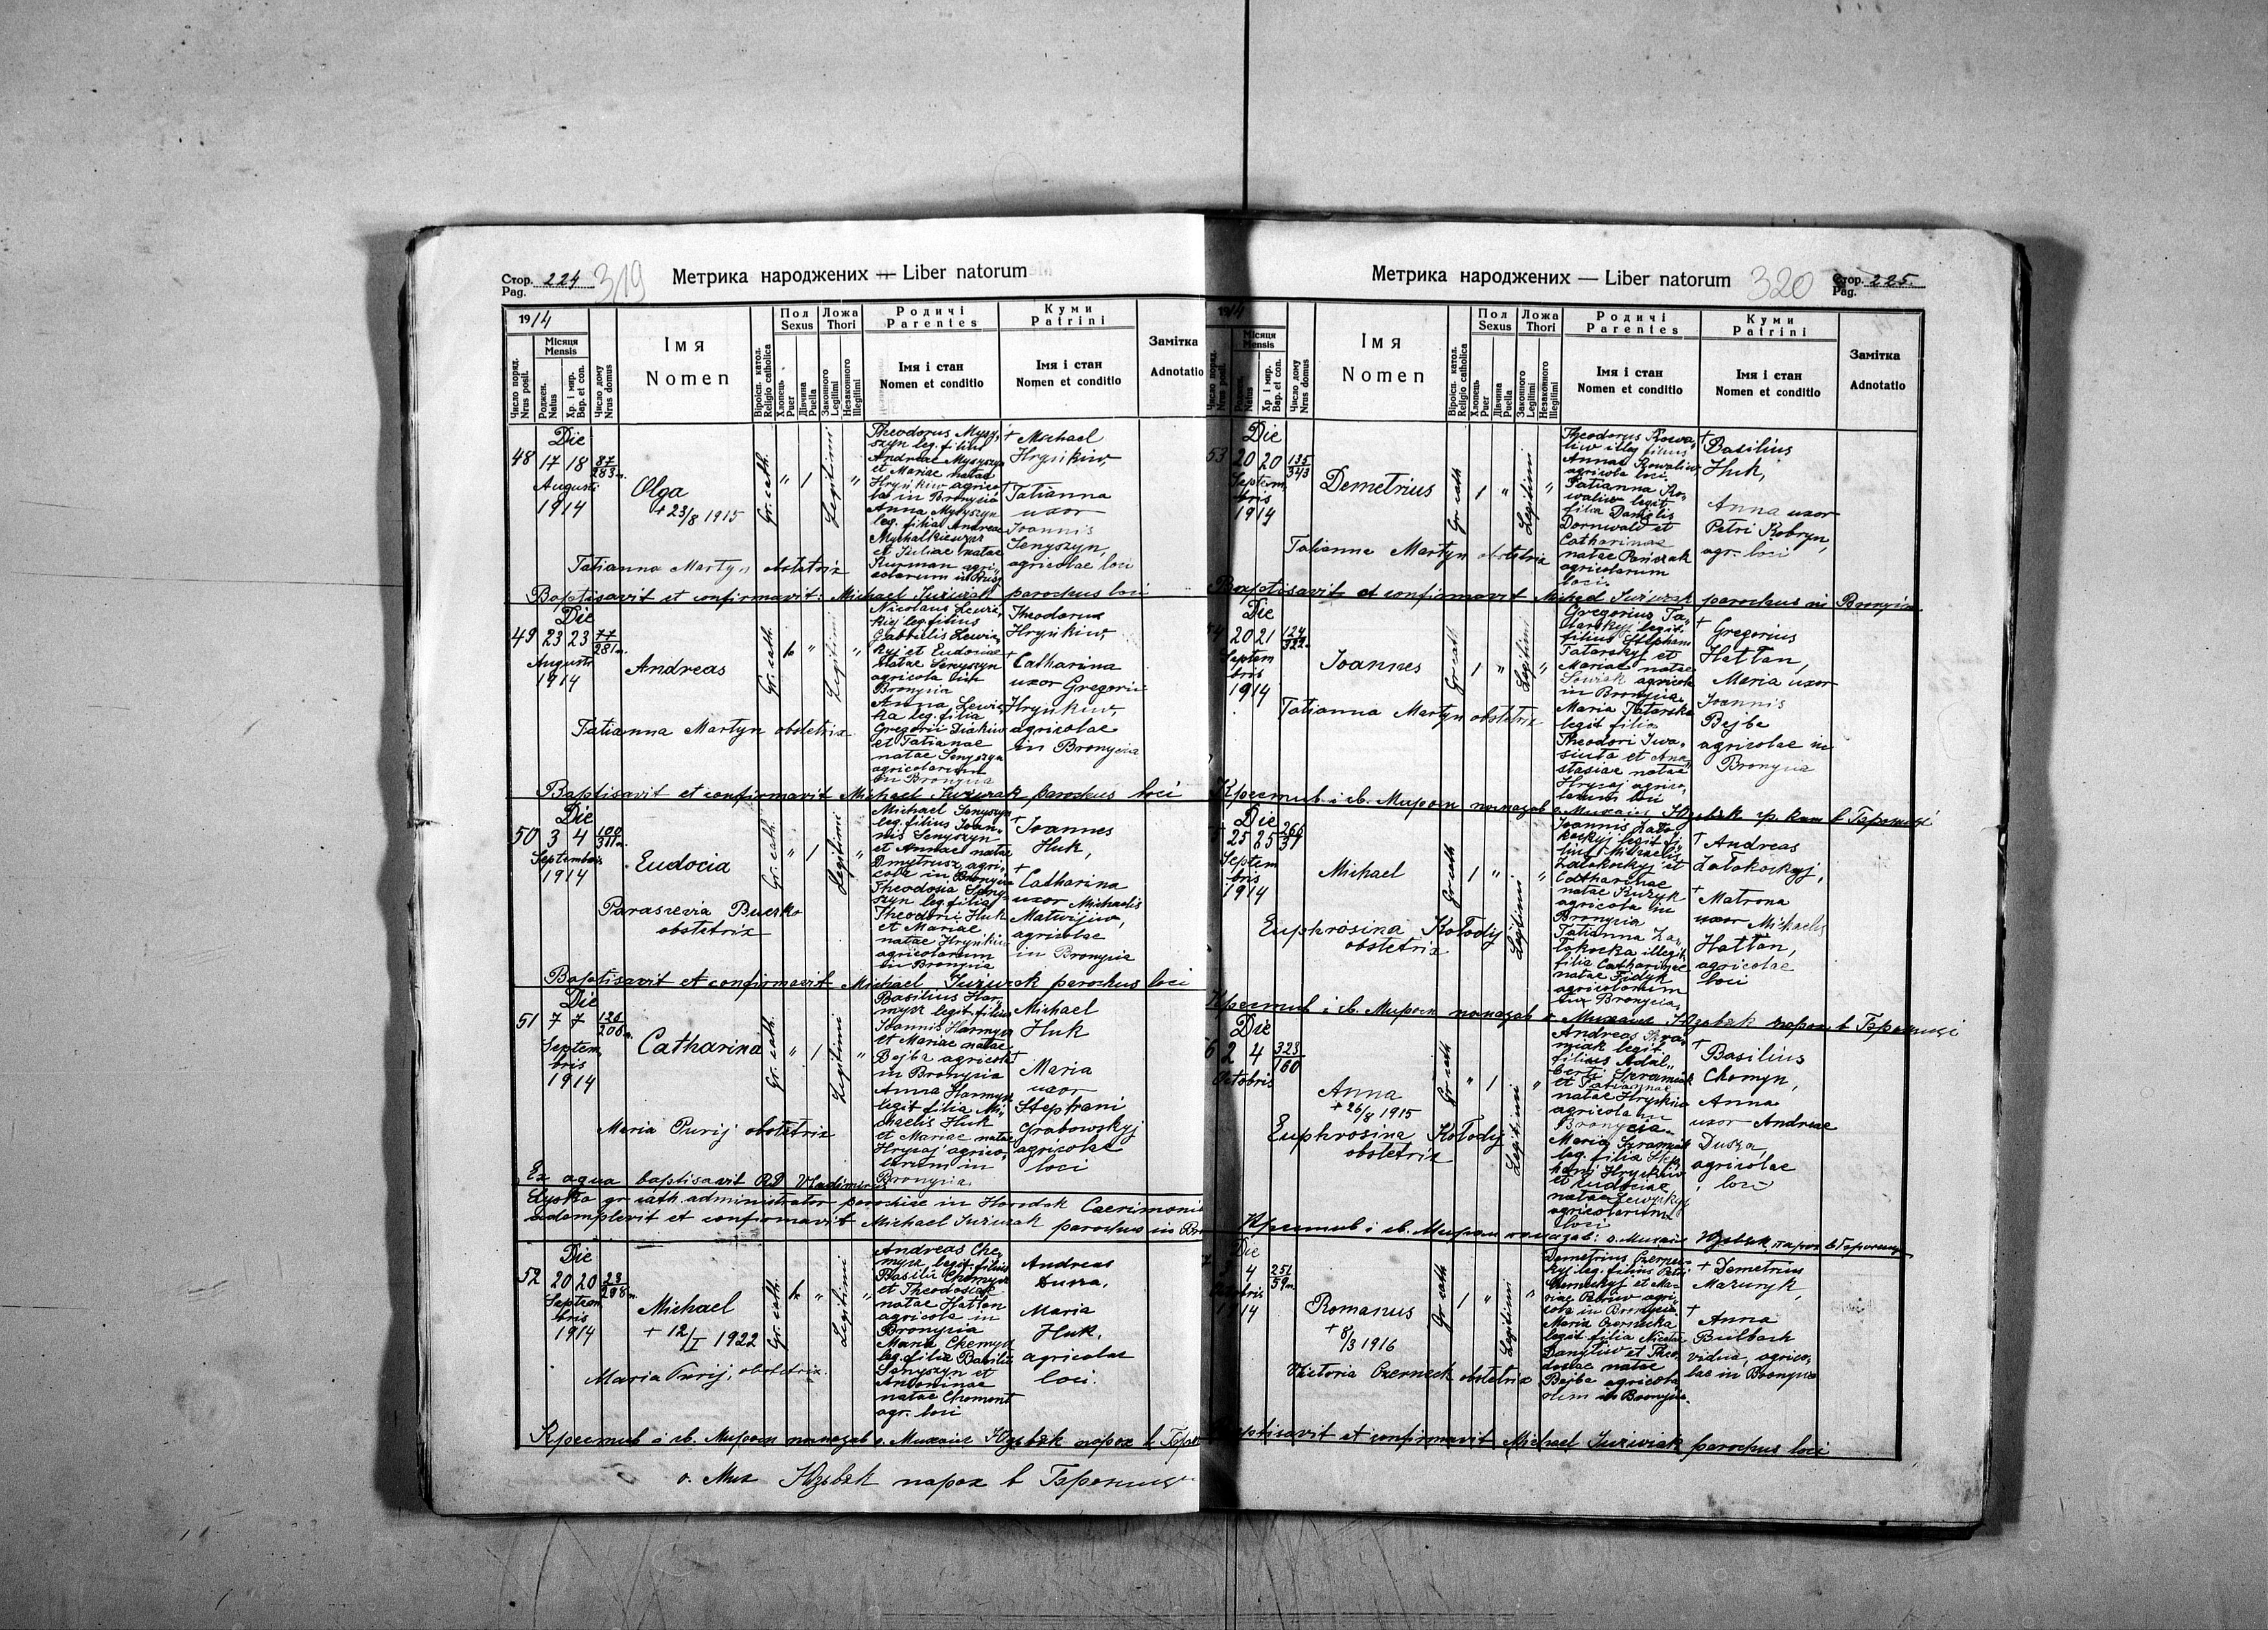 Стор. 224 319
Pag.
Метрика народжених — Liber natorum
1914
Місяця
Mensis
Число поряд.
Nrus posit.
Роджен.
Natus
Хр. і мир.
Bap. et con.
Число дому
Nrus domus
Імя
Nomen
Віроісп. катол.
Religio catholica
Пол
Sexus
Хлопець
Puer
Дівчина
Puella
Ложа
Thori
Законного
Legitimi
Незаконного
Illegitimi
Родичі
Parentes
Імя і стан
Nomen et conditio
Куми
Patrini
Імя і стан
Nomen et conditio
Замітка
Adnotatio
Die
48 17 18 87/283 n.
Augusti
1914
Olga
+ 23/8 1915
Gr. cath.
" 1
Legitimi
"
Theodorus Mysy-
szyn leg. filius
Andreae Mysyszyn
et Mariae natae
Hrynkiw agrico-
la in Bronycia
Anna Mysyszyn
leg. filia Andreae
Mychalkiewycz
et Juliae natae
Kurman agri-
colarum in
+ Michael
Hrynkiw,
+ Tatianna
uxor
Joannis
Senyszyn,
agricolae loci
Tatianna Martyn obstetrix
Baptisavit et confirmavit: Michael Juzwiak parochus loci
Die
49 23 23 77/281 n.
Augusti
1914
Andreas
Gr. cath.
"
Legitimi
"
Nicolaus Lewic-
kyj leg. filius
Gabrielis Lewic-
kyj et Eudociae
natae Senyszyn
agricola in
Bronycia
Anna Lewic-
ka leg. filia
Gregorii Diakiw
et Tatianae
natae Senyszyn
agricolarum
in Bronycia
Theodorus
Hrynkiw,
+ Catharina
uxor Gregorii
Hrynkiw,
agricolae
in Bronycia
Tatianna Martyn obstetrix
Baptisavit et confirmavit Michael Juzwiak parochus loci
Die
50 3 4
Septembris
1914
Eudocia
Gr. cath.
" 1
Legitimi
Michael Senyszyn
leg. filius Joan-
nis Senyszyn
et Annae natae
Dmytrusz agri-
cola in Bronycia
Theodosia Seny-
szyn leg. filia
Theodorii Huk
et Mariae
natae Hrynkiw
agricolarum
in Bronycia
+ Joannes
Huk,
+ Catharina
uxor Michaelis
Matwijiw,
agricolae
in Bronycia
Parascevia Buczko
obstetrix
Baptisavit et confirmavit Michael Juzwiak parochus loci
Die
51 7 7
Septem-
bris
1914
Catharina
Gr. cath.
" 1
Legitimi
"
Basilius Har-
mysz legit. filius
Joannis Harmysz
et Mariae natae
Bejba agricola
in Bronycia
Anna Harmysz
legit filia Mi-
chaelis Huk
et Mariae natae
Hrycaj agrico-
larum in
Bronycia.
Michael
Huk
+ Maria
uxor
Stephani
Grabowskyj
agricolae
loci
Maria Purij obstetrix
Ex aqua baptisavit RD Vladimirus
Lysko gr. cath. administrator parochiae in Horodok Caerimonia
adimplevit et confirmavit Michael Juzwiak parochus in
Die
52 20 20 23/298 n.
Septem-
bris
1914
Michael
+ 12/I 1922
Gr. cath.
"
Legitimi
"
Andreas Che-
mysz legit. filius
Basilii Chemysz
et Theodosiae
natae Hattan
agricola in
Bronycia
Maria Chemysz
leg. filia Basilii
Senyszyn et
Antoninae
natae Chomont
agr. loci
Andreas
Dusza,
Maria
Huk.
agricolae
loci.
Maria Purij, obstetrix.
Крестив і св. Миром помазав о. Михаил Юзьвяк парох в
о. Мих Юзьвяк парох в Бронице
Метрика народжених — Liber natorum
320 Стор. 225.
Pag.
1914
Місяця
Mensis
Число поряд.
Nrus posit.
Роджен.
Natus
Хр. і мир.
Bap. et con.
Число дому
Nrus domus
Імя
Nomen
Віроісп. катол.
Religio catholica
Пол
Sexus
Хлопець
Puer
Дівчина
Puella
Ложа
Thori
Законного
Legitimi
Незаконного
Illegitimi
Родичі
Parentes
Імя і стан
Nomen et conditio
Куми
Patrini
Імя і стан
Nomen et conditio
Замітка
Adnotatio
Die
53 20 20 135/343
Septem-
bris
1914
Demetrius
Gr. cath
1 "
Legitimi
"
Theodorus Kowa-
liw illeg filius
Annae Kowaliw
agricola loci,
Tatianna Ko-
waliw legit.
filia Danielis
Dornwald et
Catharinae
natae Panczak
agricolarum
loci.
+ Basilius
Huk,
Anna uxor
Petri Kobryn,
agr. loci
Tatianna Martyn obstetrix
Baptisavit et confirmavit Michael Juzwiak parochus in Bronycia
Die
20 21
Septem
bris
1914
Joannes
Gr. cath
1 "
Legitimi
"
Gregorius Ta-
tarskyj legit.
filius Stephani
Tatarskyj et
Mariae natae
agricola
in Bronycia.
Maria Tatarska
legit filia
Theodori Iwa-
siuta et Ana-
stasiae natae
Hrycaj agrico-
larum loci
+ Gregorius
Hattan,
Maria uxor
Joannis
Bejba
agricolae in
Bronycia
Tatianna Martyn obstetrix
Крестив і св. Миром помазав о. Михаил Юзьвяк гр. кат в Бронице
Die
25 25
Septem
bris
1914
Michael
Gr. cath
1 "
Legitimi
"
Joannis Zato-
kockyj legit fi-
lius Michaelis
Zatokockyj et
Catharinae
natae Kuzyk
agricola in
Bronycia
Tatianna Za-
tokocka illegit
filia Catharinae
natae Fidyk
agricolarum
in Bronycia.
+ Andreas
Zatokockyj,
+ Matrona
uxor Michaelis
Hattan,
agricolae
loci
Euphrosina Kołodij
obstetrix
Крестив і св. Миром помазав о. Михаил Юзьвяк парох в Бронице
Die
6 2 4 323/160
Octobris
Anna
+ 26/8 1915
Gr cath
" 1
Legitimi
"
legit.
filius Adal-
berti
et Tatiannae
natae Hrynkiw
agricola in
Bronycia.
Maria
leg. filia Step-
hani Hrynkiw
et Eudociae
natae Lewyckyj
agricolarum
loci
+ Basilius
Chomyn,
Anna
uxor Andreae
Dusza,
agricolae
loci
Euphrosina Kołodij
obstetrix
Крестив і св. Миром помазав: о. Михаил Юзьвяк парох в Бронице
Die
4 251/59 n.
1914
Romanus
+ 8/3 1916
Gr cath
1 "
Legitimi
"
Demetrius Czernec-
kyj leg. filius Petri
Czerneckyj et Ma-
riae agri-
cola in Bronycia
Maria Czernecka
legit. filia Nicolai
Danyliw et Theo-
dosiae natae
Bejba agricola-
rum in Bronycia.
+ Demetrius
Mazuryk,
+ Anna
Beilbach
vidua, agrico-
lae in Bronycia
Victoria Czerneck obstetrix
Baptisavit et confirmavit Michael Juzwiak parochus loci